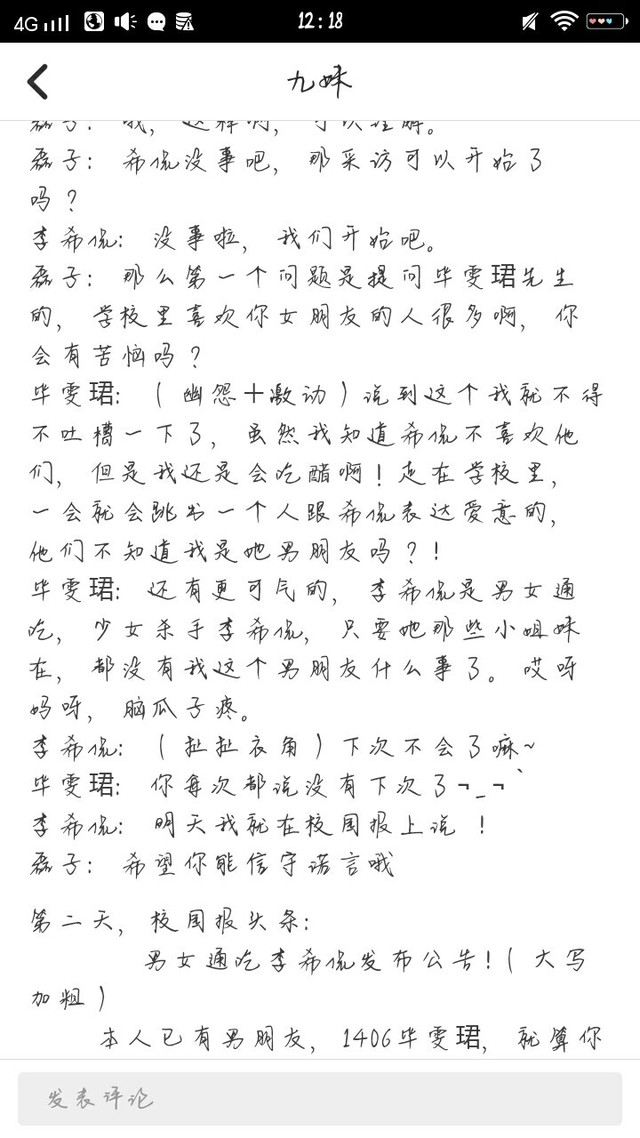 4G
12:18
九妹
磊子：哦，这样啊，可以理解。
磊子：希侃没事吧，那采访可以开始了
吗？
李希侃：没事啦，我们开始吧。
磊子：那么第一个问题是提问毕雯珺先生
的，学校里喜欢你女朋友的人很多啊，你
会有苦恼吗？
毕雯珺：（幽怨十激动）说到这个我就不得
不吐槽一下了，虽然我知道希侃不喜欢他
们，但是我还是会吃醋啊！走在学校里，
一会就会跳出一个人跟希侃表达爱意的，
他们不知道我是她男朋友吗？！
毕雯珺：还有更可气的，李希侃是男女通
吃，少女杀手李希侃，只要她那些小姐妹
在，都没有我这个男朋友什么事了。哎呀
妈呀，脑瓜子疼。
李希侃：（扯扯衣角）下次不会了嘛~
毕雯珺：你每次都说没有下次了¬_¬｀
李希侃：明天我就在校周报上说！
磊子：希望你能信守诺言哦
第二天，校周报头条：
男女通吃李希侃发布公告！（大写
加粗）
本人已有男朋友，1406毕雯珺，就算你
发表评论